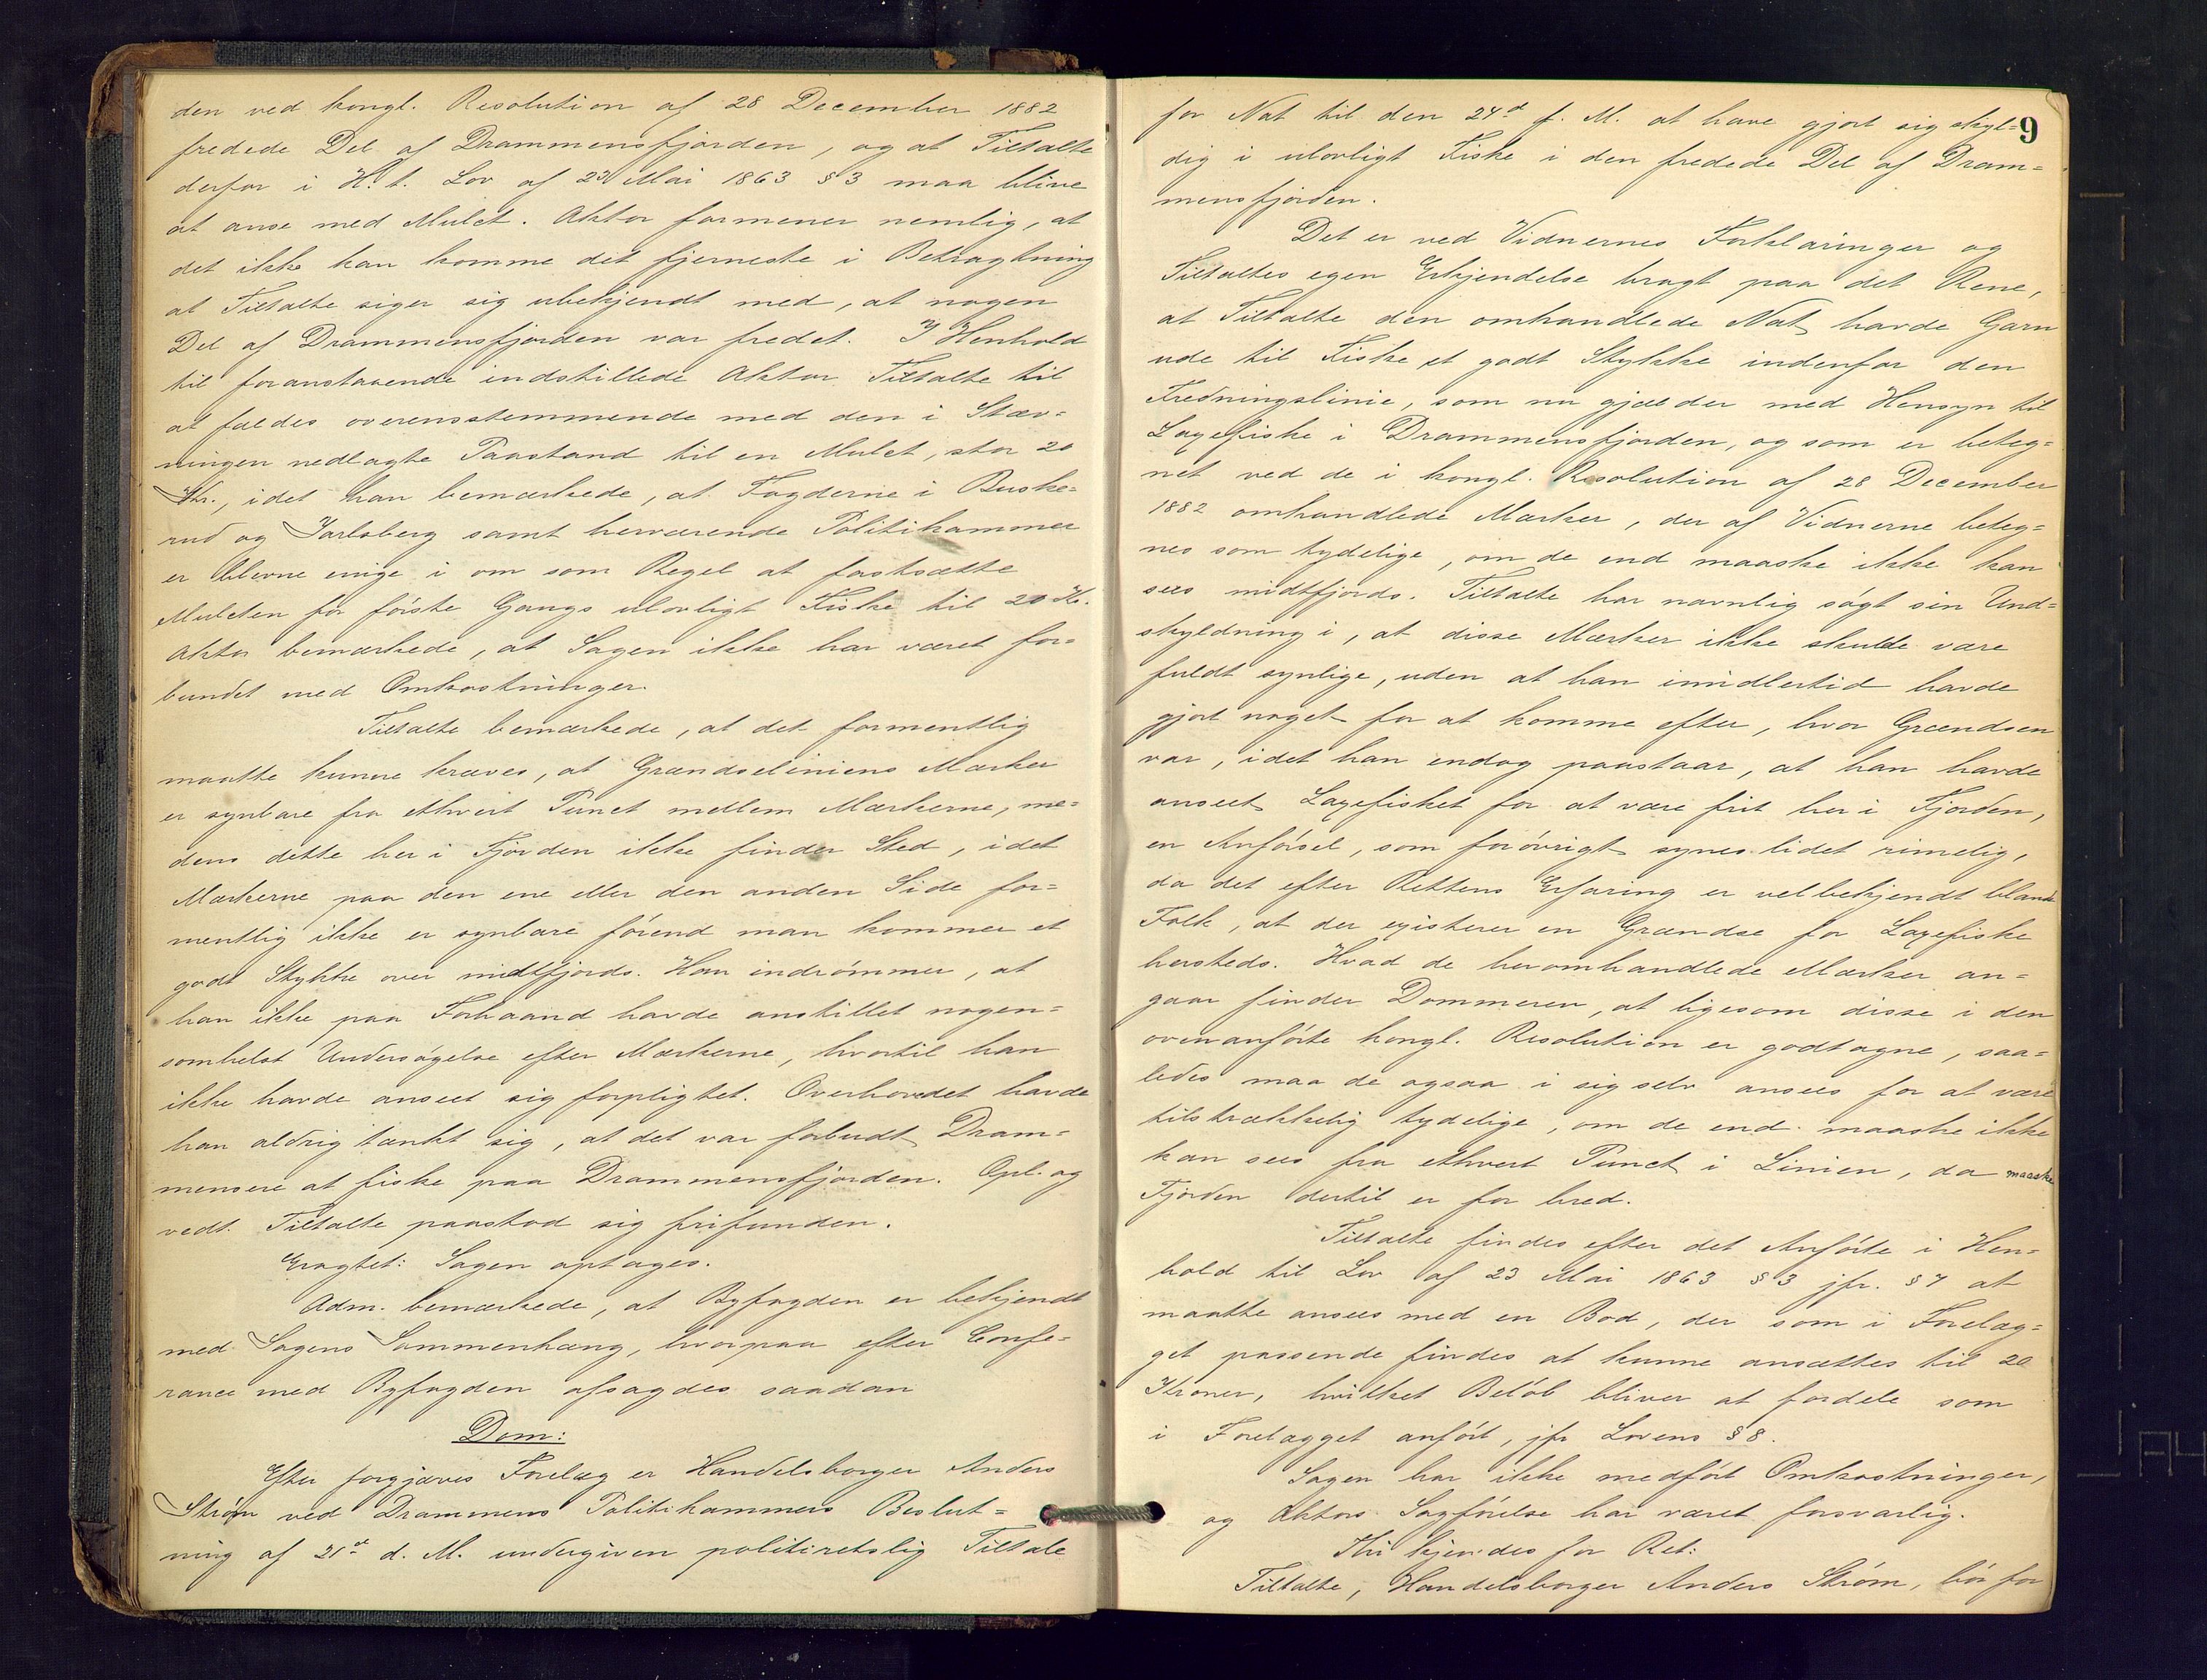 den ved kongl. Resolution af 28 December 1882
fredede Del af Drammensfjorden, og at Tiltalte
derfor i H. t. Lov af 23 Mai 1863 § 3 maa blive
at anse med Mulct. Aktor formener nemlig, at
det ikke kan komme det fjerneste i Betragtning
at Tiltalte siger sig ubekjendt med, at nogen
Del af Drammensfjorden var fredet. I Henhold
til foranstaaende indstillede Aktor Tiltalte til
at fældes overensstemmende med den i Stæv=
ningen nedlagte Paastand til en Mulct, stor 20
Kr., idet han bemærkede, at Fogderne i Buske=
rud og Jarlsberg samt herværende Politikammer
er blevne enige i om som Regel at fastsætte
Mulcten for første Gangs ulovligt Fiske til 20 Kr.
Aktor bemærkede, at Sagen ikke har været for=
bundet med Omkostninger.
Tiltalte bemærkede, at det formentlig
maatte kunne kræves, at Grændseliniens Mærker
er synbare fra ethvert Punct mellem Mærkerne, me=
dens dette her i Fjorden ikke finder Sted, idet
Mærkerne paa den ene eller den anden Side for=
mentlig ikke er synbare førend man kommer et
godt Stykke over midtfjords. Han indrømmer, at
han ikke paa Forhaand havde anstillet nogen=
somhelst Undersøgelse efter Mærkerne, hvortil han
ikke havde anseet sig forpligtet. Overhovedet havde
han aldrig tænkt sig, at det var forbudt Dram=
mensere at fiske paa Drammensfjorden. Opl. og
vedt. Tiltalte paastod sig frifunden.
Eragtet: Sagen optages.
Adm. bemærkede, at Byfogden er bekjendt
med Sagens Sammenhæng, hvorpaa efter Confe=
rance med Byfogden afsagdes saadan
Dom:
Efter forgjæves Forelæg er Handelsborger Anders
Strøm ved Drammens Politikammers Beslut=
ning af 21de d. M. undergiven politiretslig Tiltale
9
for Nat til den 24de f. M. at have gjort sig skyl=
dig i ulovligt Fiske i den fredede Del af Dram=
mensfjorden.
Det er ved Vidnernes Forklaringer og
Tiltaltes egen Erkjendelse bragt paa det Rene,
at Tiltalte den omhandlede Nat havde Garn
ude til Fiske et godt Stykke indenfor den
Fredningslinie, som nu gjælder med Hensyn til
Laxefiske i Drammensfjorden, og som er beteg=
net ved de i kongl. Resolution af 28 December
1882 omhandlede Mærker, der af Vidnerne beteg=
nes som tydelige, om de end maaske ikke kan
sees midtfjords. Tiltalte har navnlig søgt sin Und=
skyldning i, at disse Mærker ikke skulde være
fuldt synlige, uden at han imidlertid havde
gjort noget for at komme efter, hvor Grændsen
var, idet han endog paastaar, at han havde
anseet Laxefisket for at være frit her i Fjorden,
en Anførsel, som forøvrigt synes lidet rimelig,
da det efter Rettens Erfaring er velbekjendt blandt
Folk, at der existerer en Grændse for Laxefiske
hersteds. Hvad de heromhandlede Mærker an=
gaar finder Dommeren, at ligesom disse i den
ovenanførte kongl. Resolution er godtagne, saa=
ledes maa de ogsaa i sig selv ansees for at være
tilstrækkelig tydelige, om de end maaske ikke
kan sees fra ethvert Punct i Linien, da maaske
Fjorden dertil er for bred.
Tiltalte findes efter det Anførte i Hen=
hold til Lov af 23 Mai 1863 § 3 jfr. § 7 at
maatte ansees med en Bod, der som i Forelæg=
get passende findes at kunne ansættes til 20
Kroner, hvilket Beløb bliver at fordele som
i Forelægget anført, jfr Lovens § 8.
Sagen har ikke medført Omkostninger,
og Aktors Sagførelse har været forsvarlig.
Thi kjendes for Ret:
Tiltalte, Handelsborger Anders Strøm, bør for